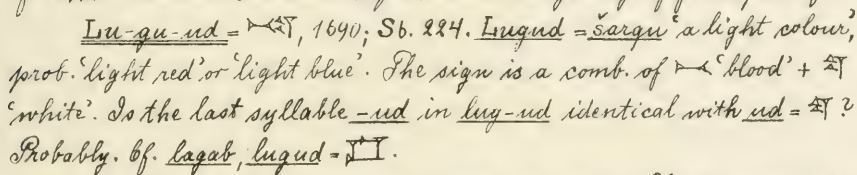 Lu-gu-ud = 𒁁𒌓, 1690; Sb. 224. Lugud = šarqu 'a light colour',
prob. 'light red' or 'light blue'. The sign is a comb. of 𒁁 'blood' + 𒌓
'white'. Is the last syllable -ud in lug-ud identical with ud = 𒌓?
Probably. Cf. lagab, lugud =